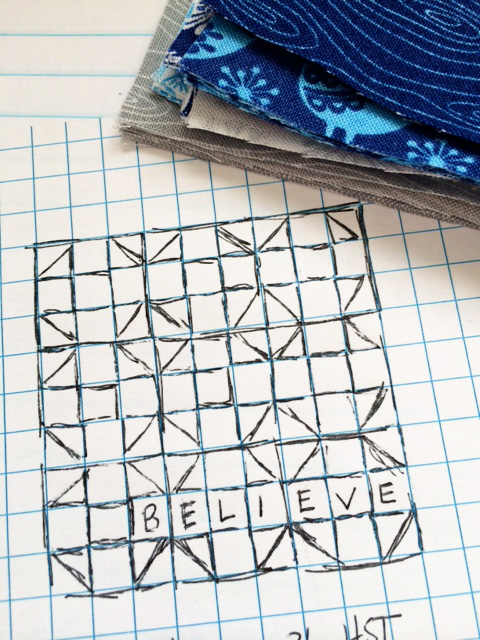 BELIEVE
HST